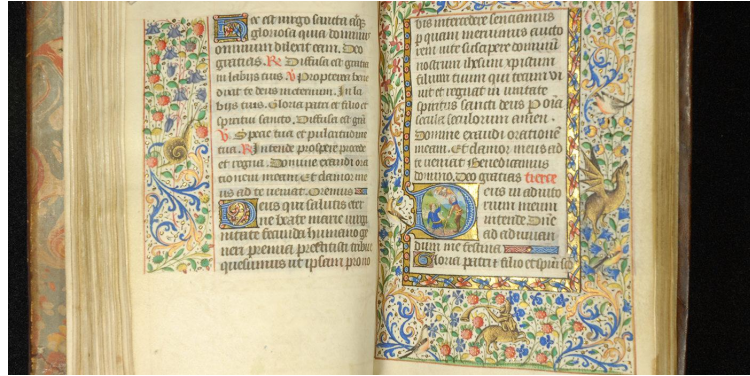 ec est virgo sancta atqȝ
gloriosa quia dominus
omnium dilexit eam. Deo
gratias. R Diffusa est gratia
in labijs tuis. V Propterea bene
dixit te deus in eternum. In la
bijs tuis. Gloria patri et filio et
spiritui sancto. Diffusa est grã
V. Specie tua et pulcritudine
tua. R Intende prospere procede
et regna. Domine exaudi ora
tionem meam Et clamor me
us ad te veniat. Oremus
Deus qui salutis eter
ne beate marie virgi
nitate fecunda humano ge
neri premia prestitisti tribue
quesumus ut ipsam pro no
bis intercedere senciamus
p quam meruimus aucto
rem vite suscipere dominũ
nostrum ihesum xpistum
filium tuum qui tecum vi
vit et regnat in unitate
spiritus sancti deus P oĩa
secula seculorum amen.
Domine exaudi orationẽ
meam. Et clamor meus ad
te veniat Benedicamus
domino. Deo gratias tierce
Deus in adiuto
rium meum
intende Dñe
ad adiuvan
dum me festina
Gloria patri et filio et spiri[...]